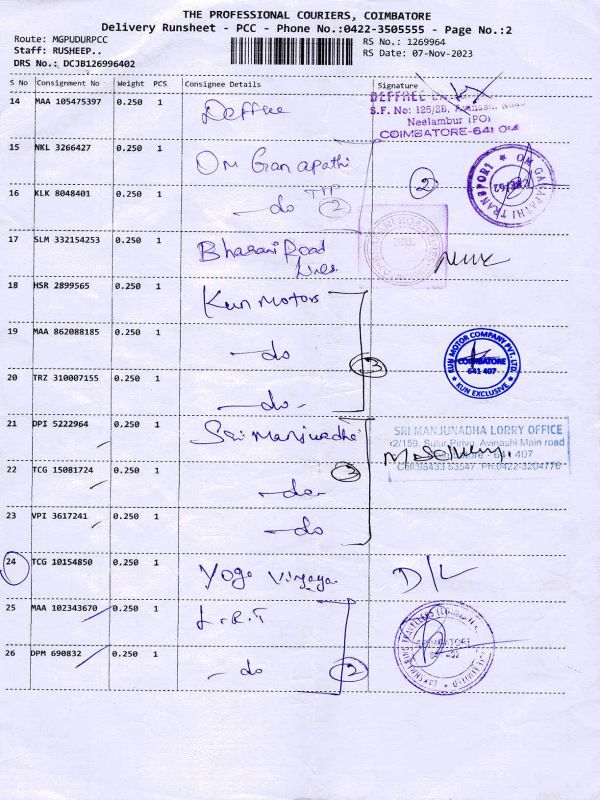 THE PROFESSIONAL COURIERS, COIMBATORE
Delivery Runsheet - PCC - Phone No.:0422-3505555 - Page No.:2
Route: MGPUDURPCC RS No.: 1269964
Staff: RUSHEEP.. RS Date: 07-Nov-2023
DRS No.: DCJB126996402
S No Consignment No Weight PCS Consignee Details Signature
14 MAA 105475397 0.250 1 Deffree
DEFFREE
S.F. No: 125/2B, Avinashi Road
Neelambur (PO)
COIMBATORE-641
15 NKL 3266427 0.250 1 Om Ganapathi
16 KLK 8048401 0.250 1 do 2 2
OM GANAPATHI TRANSPORT
17 SLM 332154253 0.250 1 Bhavani Road
Lines
18 HSR 2899565 0.250 1 Kun Motors
19 MAA 862088185 0.250 1 do 3
KUN MOTOR COMPANY PVT. LTD.
COIMBATORE
641 407
KUN EXCLUSIVE
20 TRZ 310007155 0.250 1 do
21 DPI 5222964 0.250 1 Sri Manjunadha
SRI MANJUNADHA LORRY OFFICE
2/159, Sulur Pirivu, Avinashi Main road
Coimbatore - 641 407
Cell:98433 63547 Ph:0422-3204776
22 TCG 15081724 0.250 1 do 3
23 VPI 3617241 0.250 1 do
24 TCG 10154850 0.250 1 Yoga Vijaya D/L
25 MAA 102343670 0.250 1 L.R.T
26 DPM 690832 0.250 1 do 2